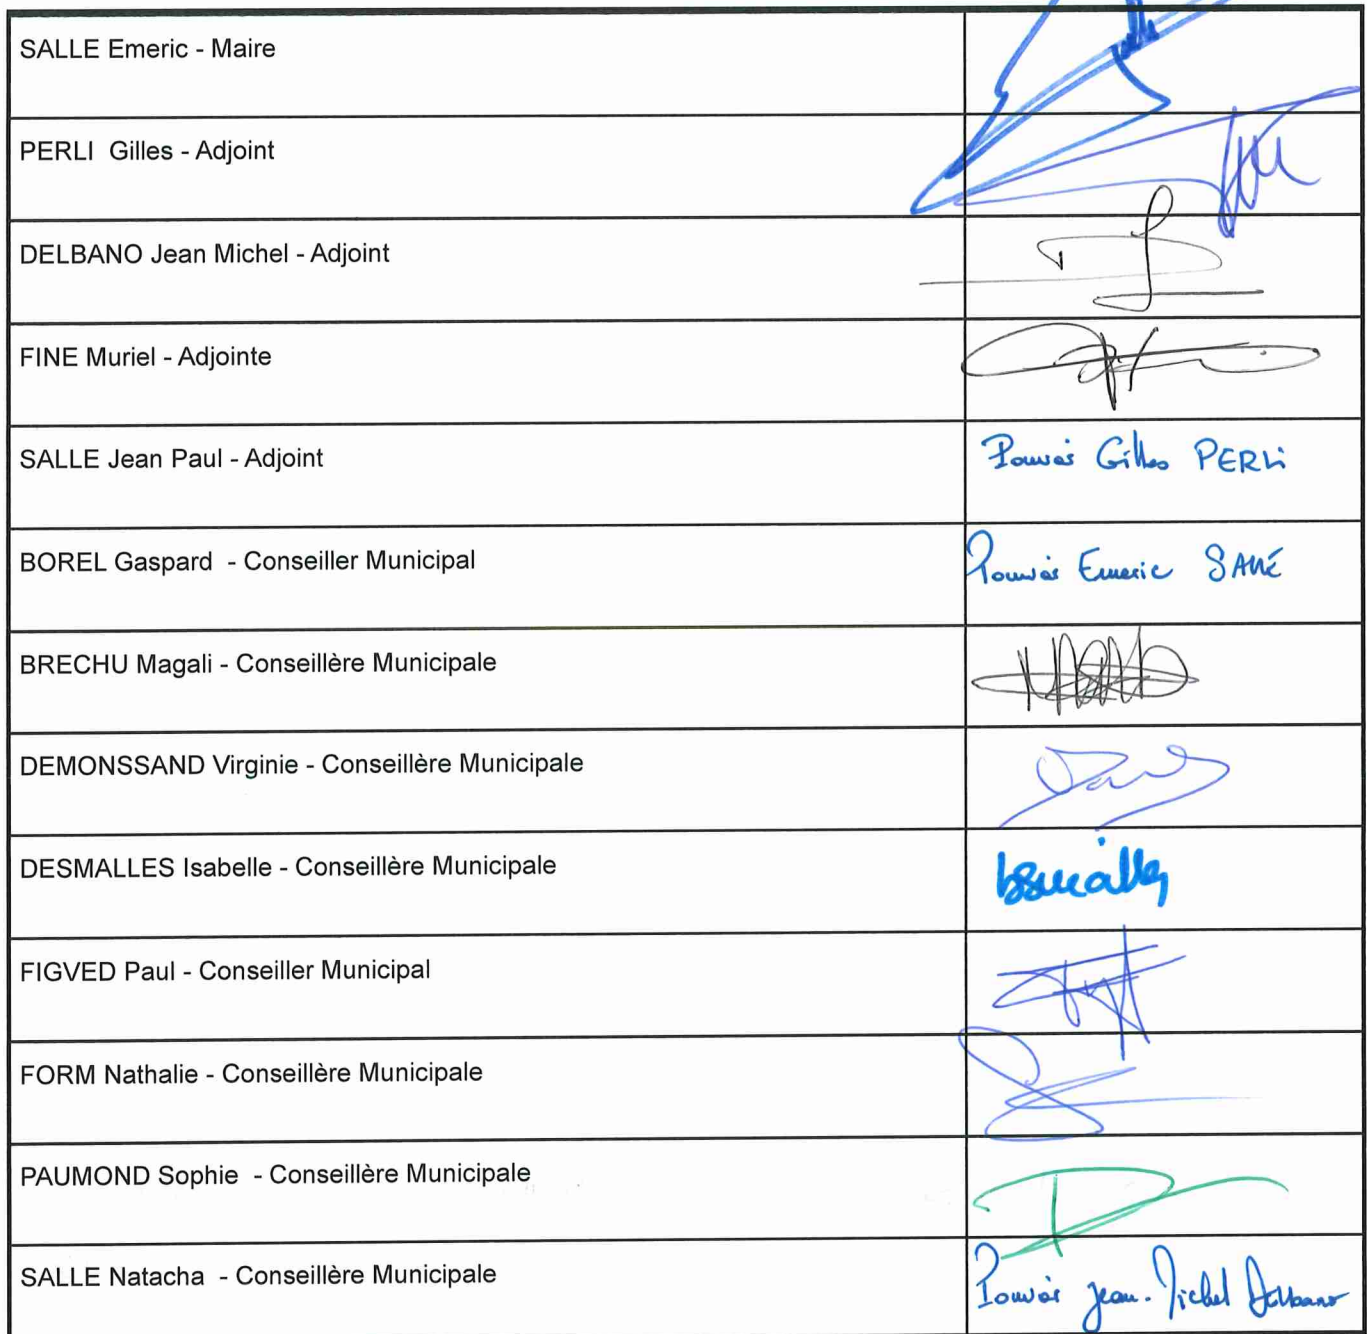 SALLE Emeric - Maire
PERLI Gilles - Adjoint
DELBANO Jean Michel - Adjoint
FINE Muriel - Adjointe
SALLE Jean Paul - Adjoint
Pouvoir Gilles PERLi
BOREL Gaspard - Conseiller Municipal
Pouvoir Emeric SALLÉ
BRECHU Magali - Conseillère Municipale
DEMONSSAND Virginie - Conseillère Municipale
DESMALLES Isabelle - Conseillère Municipale
FIGVED Paul - Conseiller Municipal
FORM Nathalie - Conseillère Municipale
PAUMOND Sophie - Conseillère Municipale
SALLE Natacha - Conseillère Municipale
Pouvoir Jean-Michel Delbano